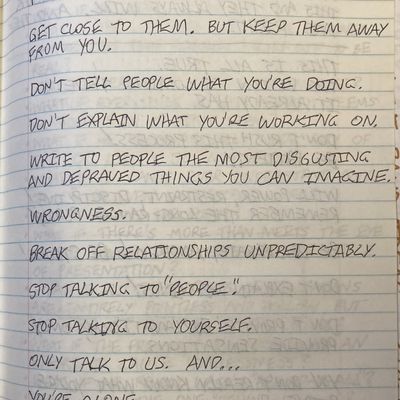 GET CLOSE TO THEM. BUT KEEP THEM AWAY
FROM YOU.
DON'T TELL PEOPLE WHAT YOU'RE DOING.
DON'T EXPLAIN WHAT YOU'RE WORKING ON.
WRITE TO PEOPLE THE MOST DISGUSTING
AND DEPRAVED THINGS YOU CAN IMAGINE.
WRONGNESS.
BREAK OFF RELATIONSHIPS UNPREDICTABLY.
STOP TALKING TO "PEOPLE".
STOP TALKING TO YOURSELF.
ONLY TALK TO US. AND...
YOU'RE ALONE